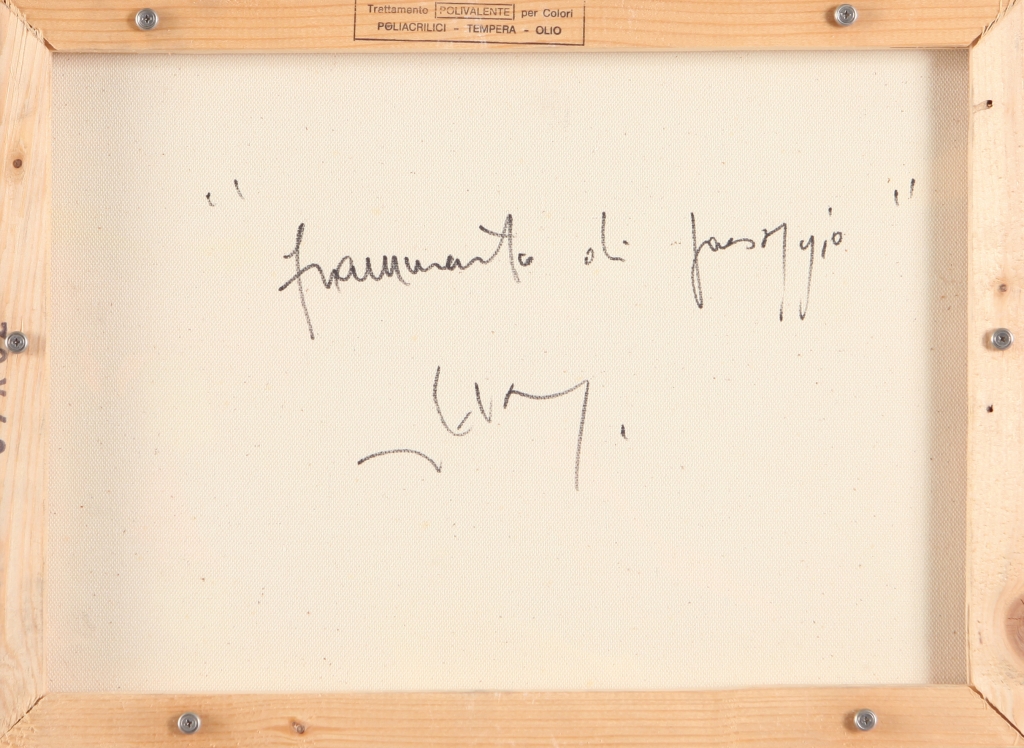 Trattamento POLIVALENTE per Colori
POLIACRILICI - TEMPERA - OLIO
"frammento di paesaggio"